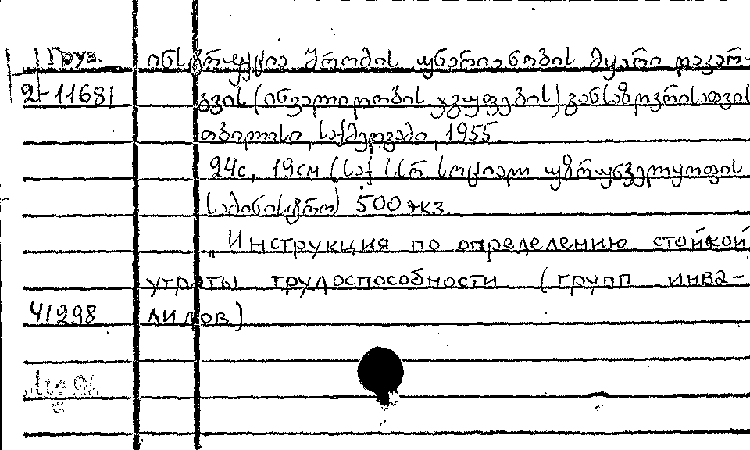 Груз. ინსტრუქცია შრომის უნარიანობის მყარი დაკარ-
2-11681 გვის (ინვალიდობის ჯგუფების) განსაზღვრისათვის
თბილისი, საქმედგამი, 1955
24с, 19см (საქ. სსრ სოციალური უზრუნველყოფის
სამინისტრო) 500 экз.
„Инструкция по определению стойкой
утраты трудоспособности (групп инва-
41298 лидов)